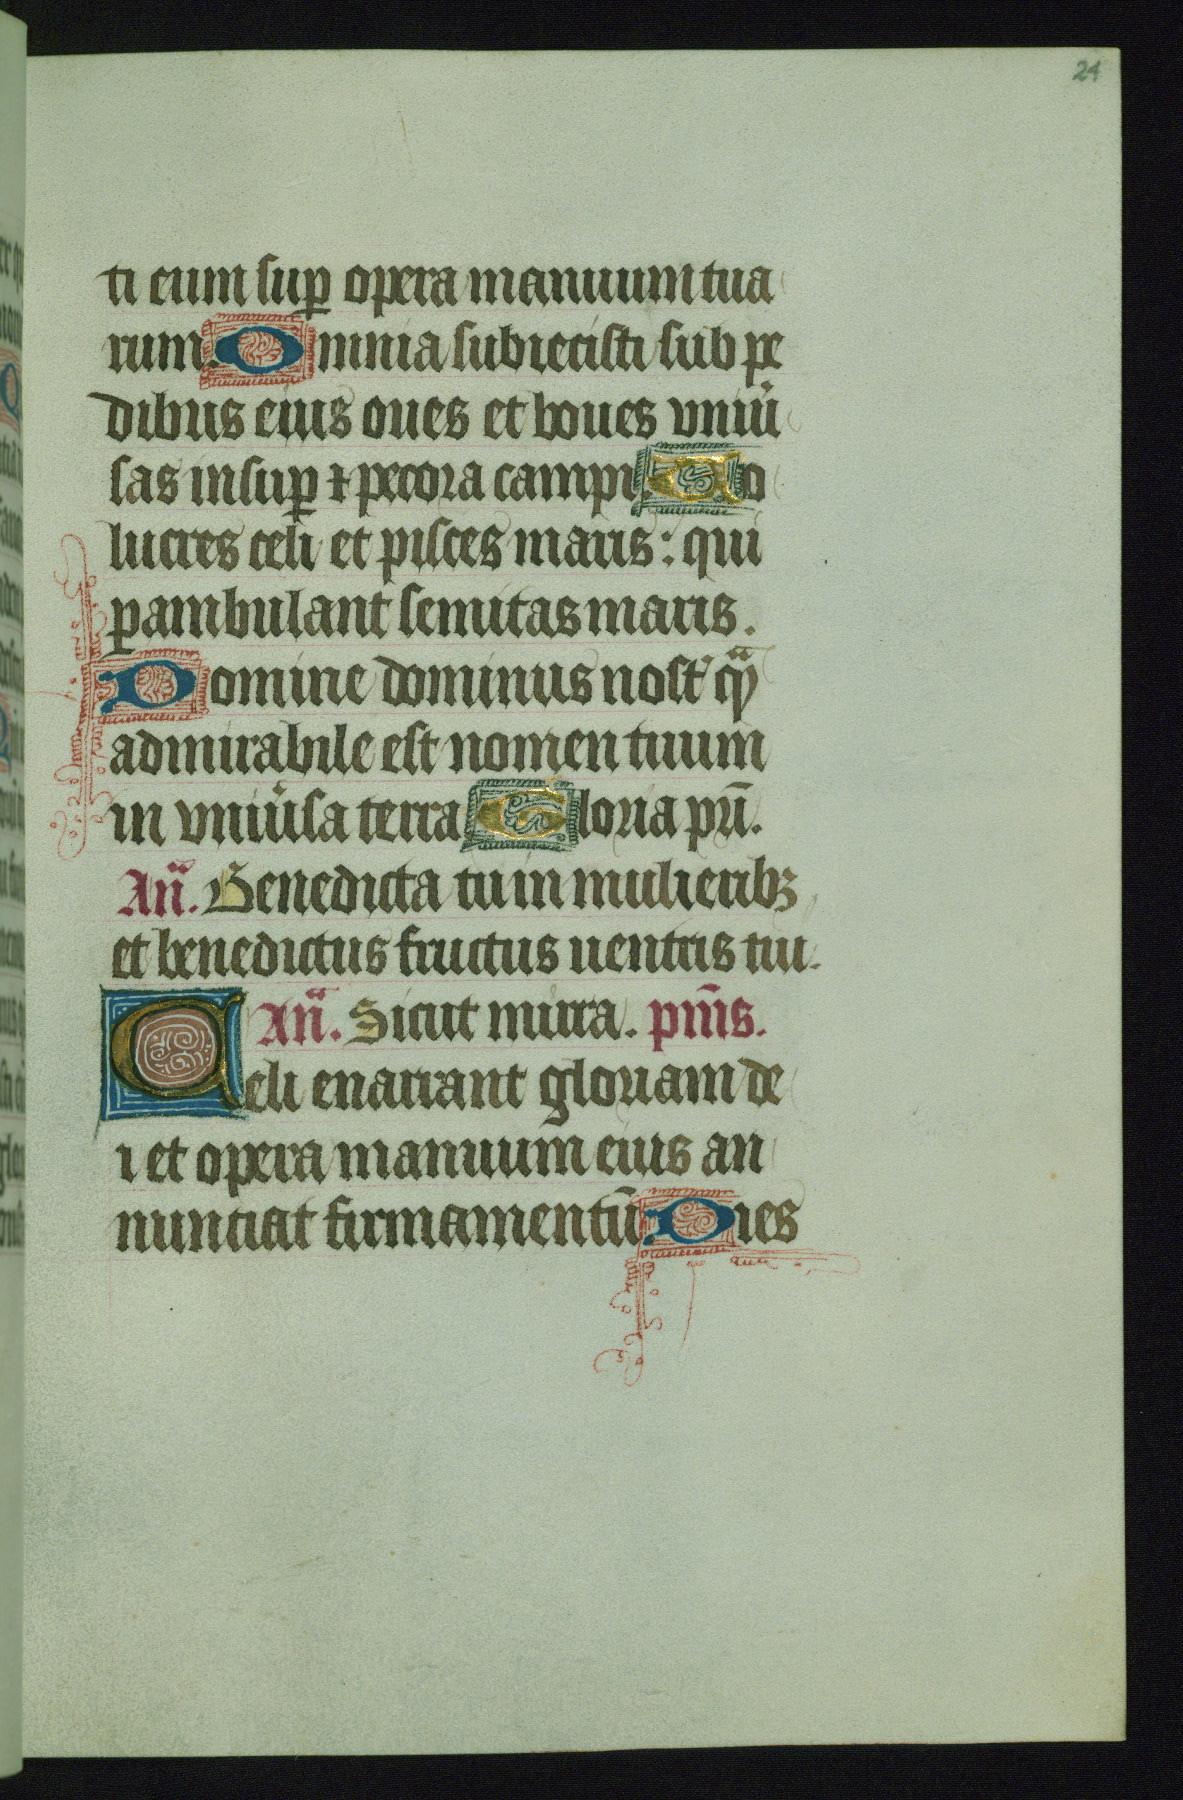 24
ti eum suꝑ opera manuum tua
rum. Omnia subiecisti sub pe
dibus eius oues et boues vniu̾
sas insuꝑ ⁊ pecora campi. Uo
lucres celi et pisces maris: qui
ꝑambulant semitas maris.
Domine dominus nost̾ qͣ
admirabile est nomen tuum
in vniu̾sa terra Gloria pr̄i.
Anͣ. Benedicta tu in mulieribꝫ
et benedictus fructus uentris tui.
Anͣ. Sicut mirra. pm̄s.
Celi enarrant gloriam de
i et opera manuum eius an
nunciat firmamentū. Dies